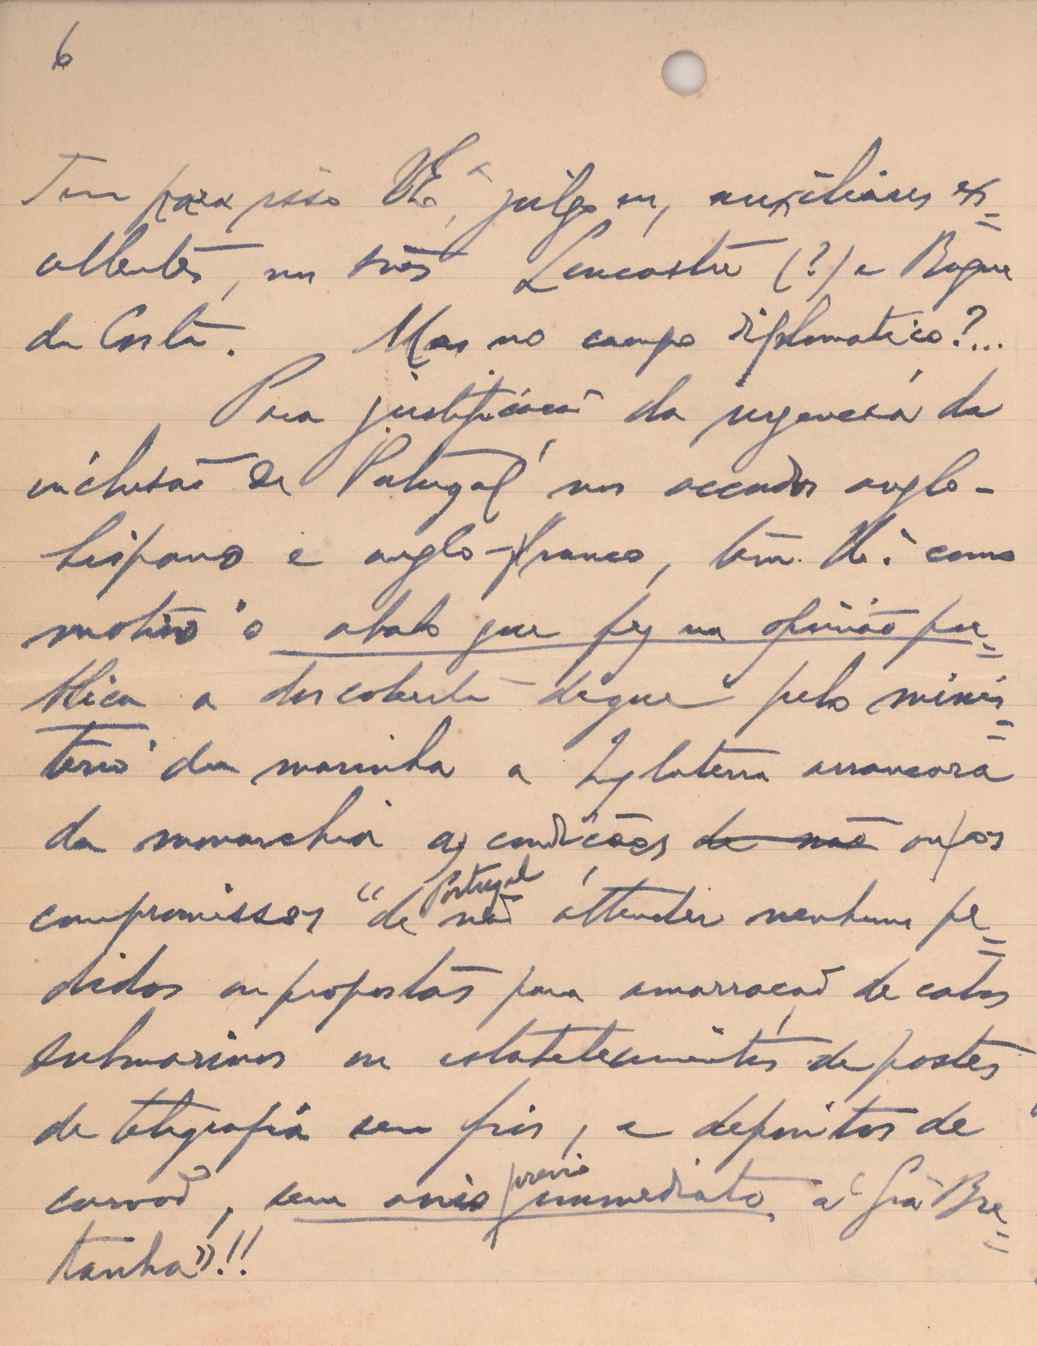 6
Tem para isso VEª, julgo eu, auxiliares ex=
cellentes, nos snrs Lencastre (?) e Roque
da Costa. Mas no campo diplomatico?...
Para justificação da urgencia da
inclusão de Portugal nos accordos anglo-
hispano e anglo-franco, tem Vª como
motivo o abalo que fez na opinião pu=
blica a descoberta de que pelo minis=
terio da marinha a Inglaterra arrancara
da monarchia as condições de não ou/os
compromissos "de Portugal não attender nenhuns pe=
didos ou propostas para amarração de cabos
submarinos ou estabelecimentos de postes
de telegrafia sem fios, e depositos de
carvão, sem aviso previo immediato, á Grã Bre=
tanha"!!